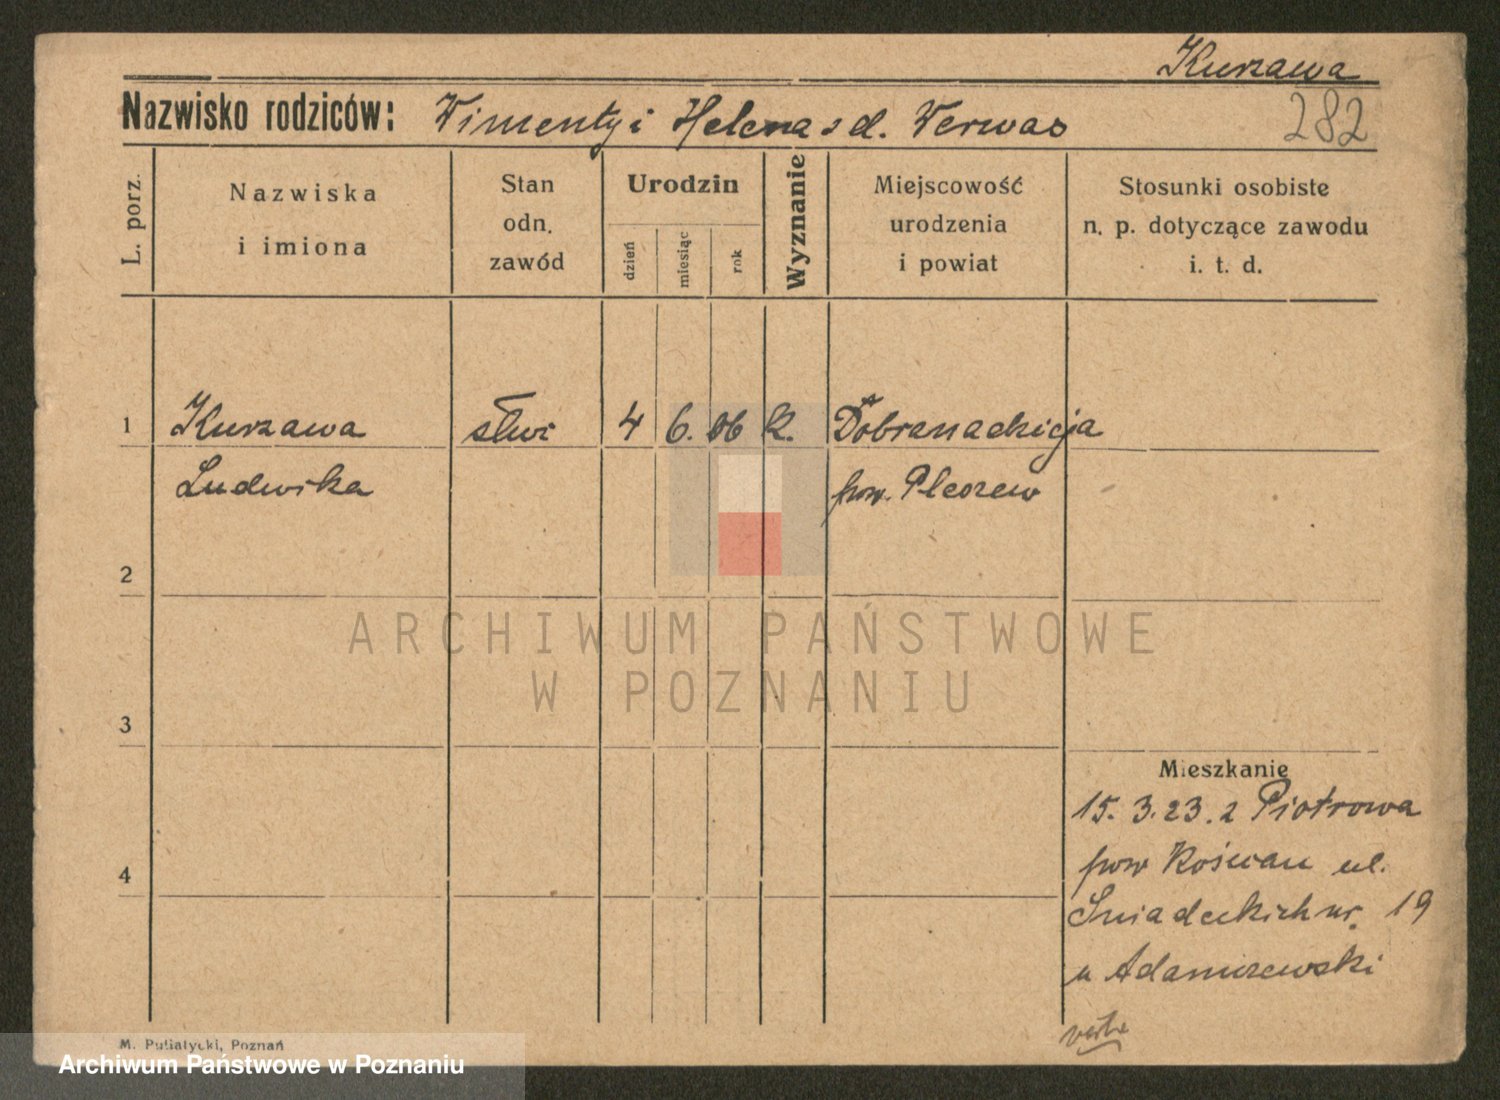 Kurzawa
282
Nazwisko rodziców: Wincenty i Helena z d. Werwas
L. porz.
Nazwiska
i imiona
Stan
odn.
zawód
Urodzin
dzień
miesiąc
rok
Wyznanie
Miejscowość
urodzenia
i powiat
Stosunki osobiste
n. p. dotyczące zawodu
i. t. d.
1
Kurzawa
Ludwika
służ
4
6.
06
k.
pow. Pleszew
2
3
4
ARCHIWUM PAŃSTWOWE
W POZNANIU
Mieszkanie
15. 3. 23. z Piotrowa
pow Kościan ul.
Śniadeckich nr. 19
u Adamczewski
M. Putiatycki, Poznań
Archiwum Państwowe w Poznaniu